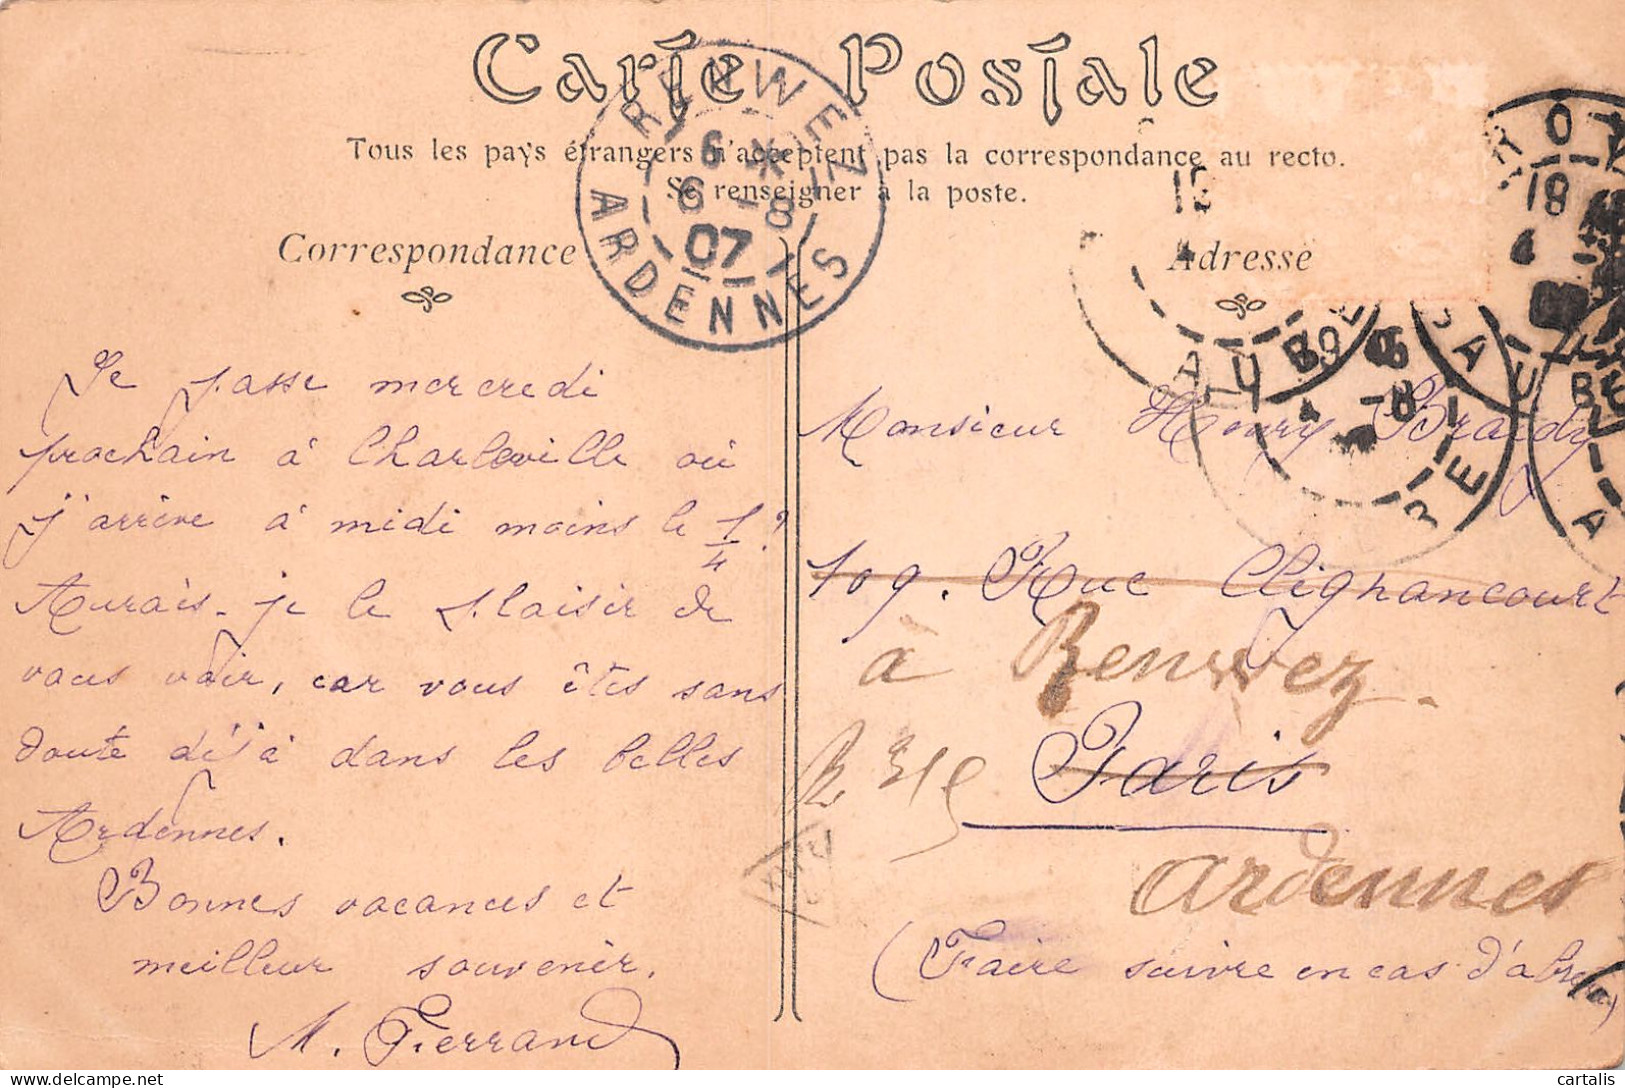 Carte Postale
Tous les pays étrangers n'acceptent pas la correspondance au recto.
Se renseigner à la poste.
Correspondance
Adresse
RENWEZ
6 *
6 -8
07
ARDENNES
Je passe mercredi
prochain à Charleville où
j'arrive à midi moins le 1/4?
Aurais-je le plaisir de
vous voir, car vous êtes sans
doute déjà dans les belles
Ardennes.
Bonnes vacances et
meilleur souvenir.
M. Ferrand
Monsieur Henry
109. Rue Clignancourt
à Renwez.
Paris
Ardennes
(Faire suivre en cas d'absence)
AUBE
18
4
cartalis